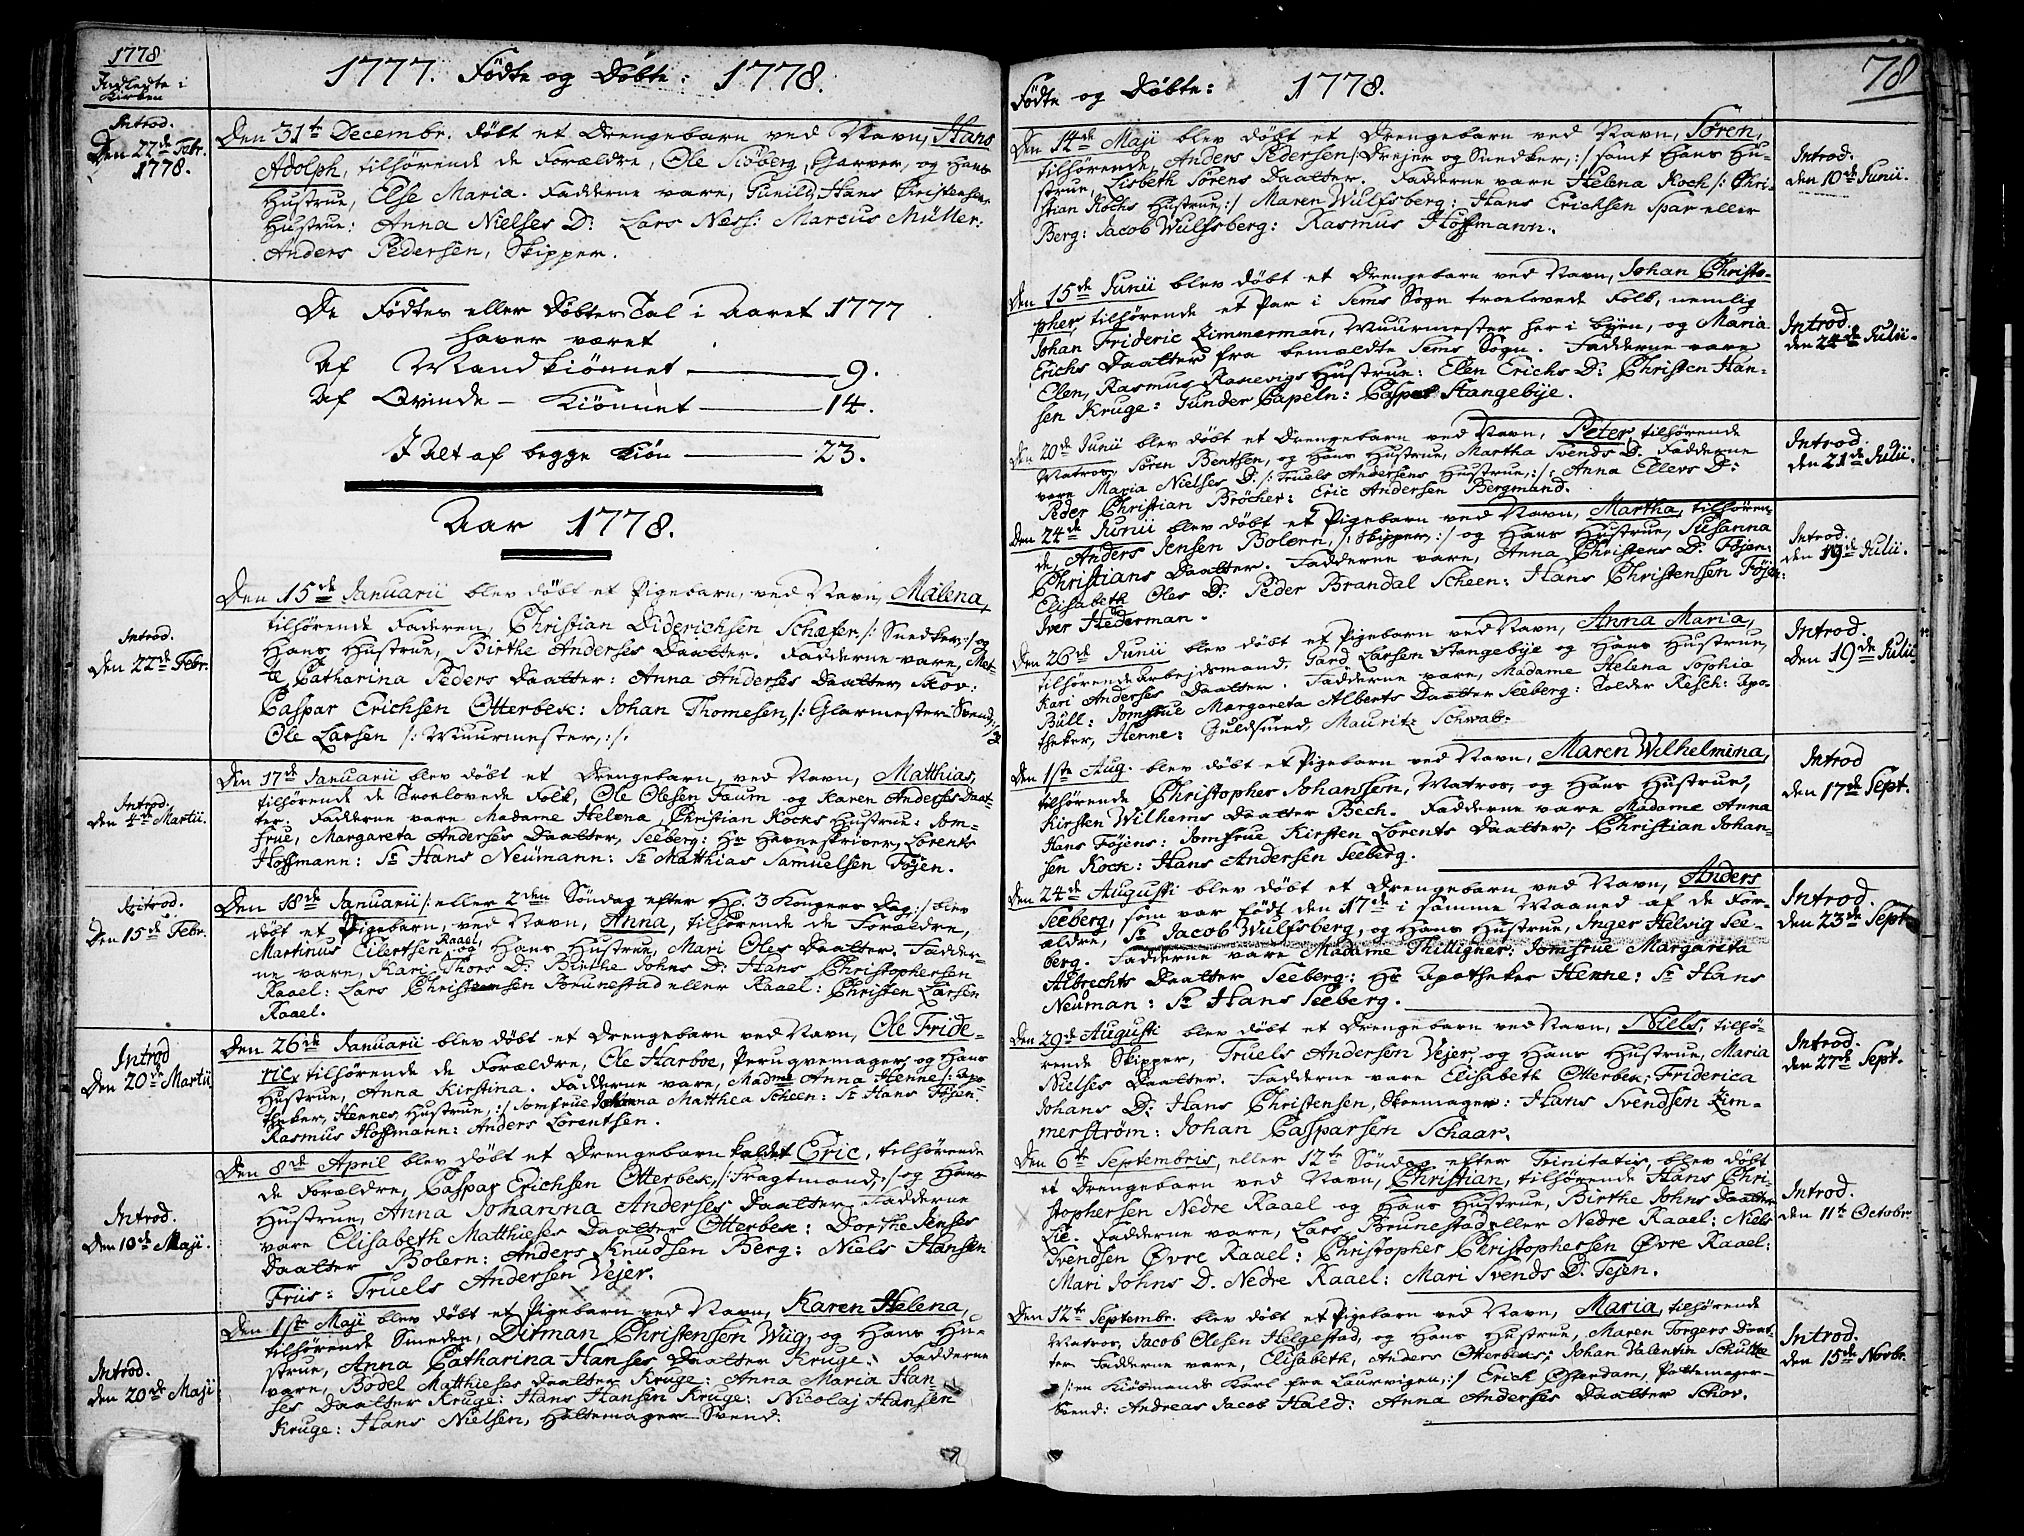 1778
Indledte i
Kirken
1777. Fødte og Døbte: 1778.
Introd.
Den 27de Febr.
1778.
Den 31te Decembr. døbt et Drengebarn ved Navn, Hans
Adolph, tilhørende de Forældre, Ole Siøberg, Garver, og Hans
Hustrue, Else Maria. Fadderne vare, Gunild, Hans Christensens
Hustrue: Anna Nielses D: Lars Ness: Marcus Müller:
Anders Pedersen, Skipper.
De Fødtes eller Døbtes Tal i Aaret 1777
haver været
Af Mandkiønnet 9.
Af Qvinde-Kiønnet 14.
I Alt af begge Kiøn 23.
Aar 1778.
Introd.
Den 22de Febr.
Den 15de Januarii blev døbt et Pigebarn, ved Navn, Malena,
tilhørende Faderen, Christian Diderichsen Schæfer /: Snedker :/ og
Hans Hustrue, Birthe Anderses Daatter. Fadderne vare, Met-
te Catharina Peders Daatter: Anna Anderses Daatter, Skov:
Caspar Erichsen Otterbek: Johan Thomesen, /: Glarmester-Svend :/
Ole Larsen /: Muurmester, :/:
Introd.
Den 4de Martii.
Den 17de Januarii blev døbt et Drengebarn, ved Navn, Matthias,
tilhørende de Troelovede Folk, Ole Olesen Faum og Karen Anderses Daat-
ter. Fadderne vare Madame Helena, Christian Kocks Hustrue: Jom-
frue, Margareta Anderses Daatter, Seeberg: Hr Havneskriver, Lorents
Hoffmann: Sr Hans Neümann: Sr Matthias Samuelsen Føjen.
Introd.
Den 15de Febr.
Den 18de Januarii /: eller 2den Søndag efter H. 3 Kongers Dag :/ blev
døbt et Pigebarn, ved Navn, Anna, tilhørende de Forældre,
Martinus Eilertsen Raael, og Hans Hustrue, Mari Oles Daatter. Fadder-
ne vare, Kari Thors D: Birthe Johns D: Hans Christophersen
Raael: Lars Christensen Brunestad eller Raael: Christen Larsen
Raael.
Introd
Den 20de Martii
Den 26de Januarii blev døbt et Drengebarn ved Navn, Ole Fride-
ric, tilhørende de Forældre, Ole Harboe, Perugvemager, og Hans
Hustrue, Anna Kirstina. Fadderne vare, Madme Anna Henne /: Apo-
theker, Hennes, Hustrue, :/ Jomfrue Johanna Matthea Scheen: Sr Hans Føjen:
Rasmus Hoffmann: Anders Lorentsen.
Introd.
Den 10de Maji.
Den 8de April blev døbt et Drengebarn kaldet Eric, tilhørende
de Forældre, Caspar Erichsen Otterbek, /: Fragtmand, :/ og Hans
Hustrue, Anna Johanna Anderses Daatter. Fadderne
vare Elisabeth Matthieses Daatter Otterbek: Dorthe Jenses
Daatter Bolern: Anders Knudsen Berg: Niels Hansen
Friis: Truels Andersen Vejer.
Introd.
Den 20de Maji
Den 1ste Maji blev døbt et Pigebarn ved Navn, Karen Helena,
tilhørende Smeden, Ditman Christensen Wüg, og Hans Hu-
strue, Anna Catharina Hanses Daatter Kruge. Fadderne
vare, Bodel Matthieses Daatter Kruge: Anna Maria Han-
ses Daatter Kruge: Hans Hansen Kruge: Nicolaj Hansen
Kruge: Hans Nielsen, Hattemager-Svend.
78
Fødte og Døbte: 1778.
Den 14de Maji blev døbt et Drengebarn ved Navn, Søren,
tilhørende, Anders Pedersen /: Drejer og Snedker, :/ samt Hans Hu-
strue, Lisbeth Sørens Daatter. Fadderne vare Helena Koch /: Chri-
stian Kochs Hustrue, :/ Maren Wulfsberg: Hans Erichsen Spar eller
Berg: Jacob Wulfsberg: Rasmus Hoffmann.
Introd.
den 10de Junii.
Den 15de Junii blev døbt et Drengebarn ved Navn, Johan Christo-
pher, tilhørende et Par i Sems Sogn troelovede Folk, nemlig
Johan Frideric Zimmerman, Muurmester her i byen, og Maria
Erichs Daatter fra bemældte Sems Sogn. Fadderne vare
Elen, Rasmus Ranevigs Hustrue: Elen Erichs D: Christen Han-
sen Kruge: Gunder Capeln: Caspar Stangebÿe.
Introd.
den 24de Julii.
Den 20de Junii blev døbt et Drengebarn ved Navn, Peter, tilhørende
Matros, Søren Bentsen, og Hans Hustrue, Martha Svends D. Fadderne
vare Maria Nielses D: /: Truels Andersens Hustrue, :/: Anna Ellevs D:
Peder Christian Bröcher: Eric Andersen Bergmand.
Introd.
den 21de Julii.
Den 24de Junii blev døbt et Pigebarn ved Navn, Martha, tilhøren-
de, Anders Jensen Bolern, /: Skipper, :/ og Hans Hustrue, Susanna
Christians Daatter. Fadderne vare, Anna Christens D: Føjen:
Elisabeth Oles D: Peder Brandal Scheen: Hans Christensen Føjen:
Iver Hederman.
Introd.
den 19de Julii.
Den 26de Junii blev døbt et Pigebarn ved Navn, Anna Maria,
tilhørende Arbejdsmand, Gard Larsen Stangebÿe og Hans Hustrue,
Kari Anderses Daatter. Fadderne vare, Madame Helena Sophia
Büll: Jomfrue Margareta Alberts Daatter Seeberg: Tolder Resch: Apo-
theker, Henne: Guldsmed, Mauritz Schwab.
Introd.
den 19de Julii
Den 1ste Aug. blev døbt et Pigebarn ved Navn, Maren Wilhelmina,
tilhørende Christopher Johanssen, Matros, og Hans Hustrue,
Kirsten Wilhelms Daatter Bech. Fadderne vare Madame Anna
Hans Føjens: Jomfrue Kirsten Lorents Daatter, Christian Johan-
sen Kock: Hans Andersen Seeberg.
Introd
den 17de Sept.
Den 24de Augusti blev døbt et Drengebarn ved Navn, Anders
Seeberg, som var født den 17de i samme Maaned af de For-
ældre, Sr Jacob Wulfsberg, og Hans Hustrue, Inger Helvig See-
berg. Fadderne vare Madame Thilligner: Jomfrue Margareta
Albrechts Daatter Seeberg: Hr Apotheker Henne: Sr Hans
Neüman: Sr Hans Seeberg.
Introd.
den 23de Sept.
Den 29de Augusti blev døbt et Drengebarn ved Navn, Niels, tilhø-
rende Skipper, Truels Andersen Vejer, og Hans Hustrue, Maria
Nielses Daatter. Fadderne vare Elisabeth Otterbek: Friderica
Johans D: Hans Christensen, Skoemager: Hans Svendsen Zim-
merstrøm: Johan Casparsen Schaar.
Introd.
den 27de Sept.
Den 6te Septembris, eller 12te Søndag efter Trinitatis, blev døbt
et Drengebarn ved Navn, Christian, tilhørende Hans Chri-
stophersen Nedre Raael og Hans Hustrue, Birthe Johns Daatter
Lie. Fadderne vare, Lars Brunestad eller Nedre Raael: Niels
Svendsen Øvre Raael: Christopher Christophersen Øvre Raael:
Mari Johns D. Nedre Raael: Mari Svends D. Tejen.
Introd.
den 11te Octobr.
Den 12te Septembr. blev døbt et Pigebarn ved Navn, Maria, tilhørende
Matros, Jacob Olesen Helgestad, og Hans Hustrue, Maren Torgers Daat-
ter. Fadderne vare, Elisabeth, Anders Otterbeks: Johan Valentin Schütte
/: en Kiøbmands Karl fra Laurvigen, :/ Erich Østerdam, Pottemager-
Svend: Andreas Jacob Hald: Anna Anderses Daatter Schov.
Introd.
den 15de Novbr.